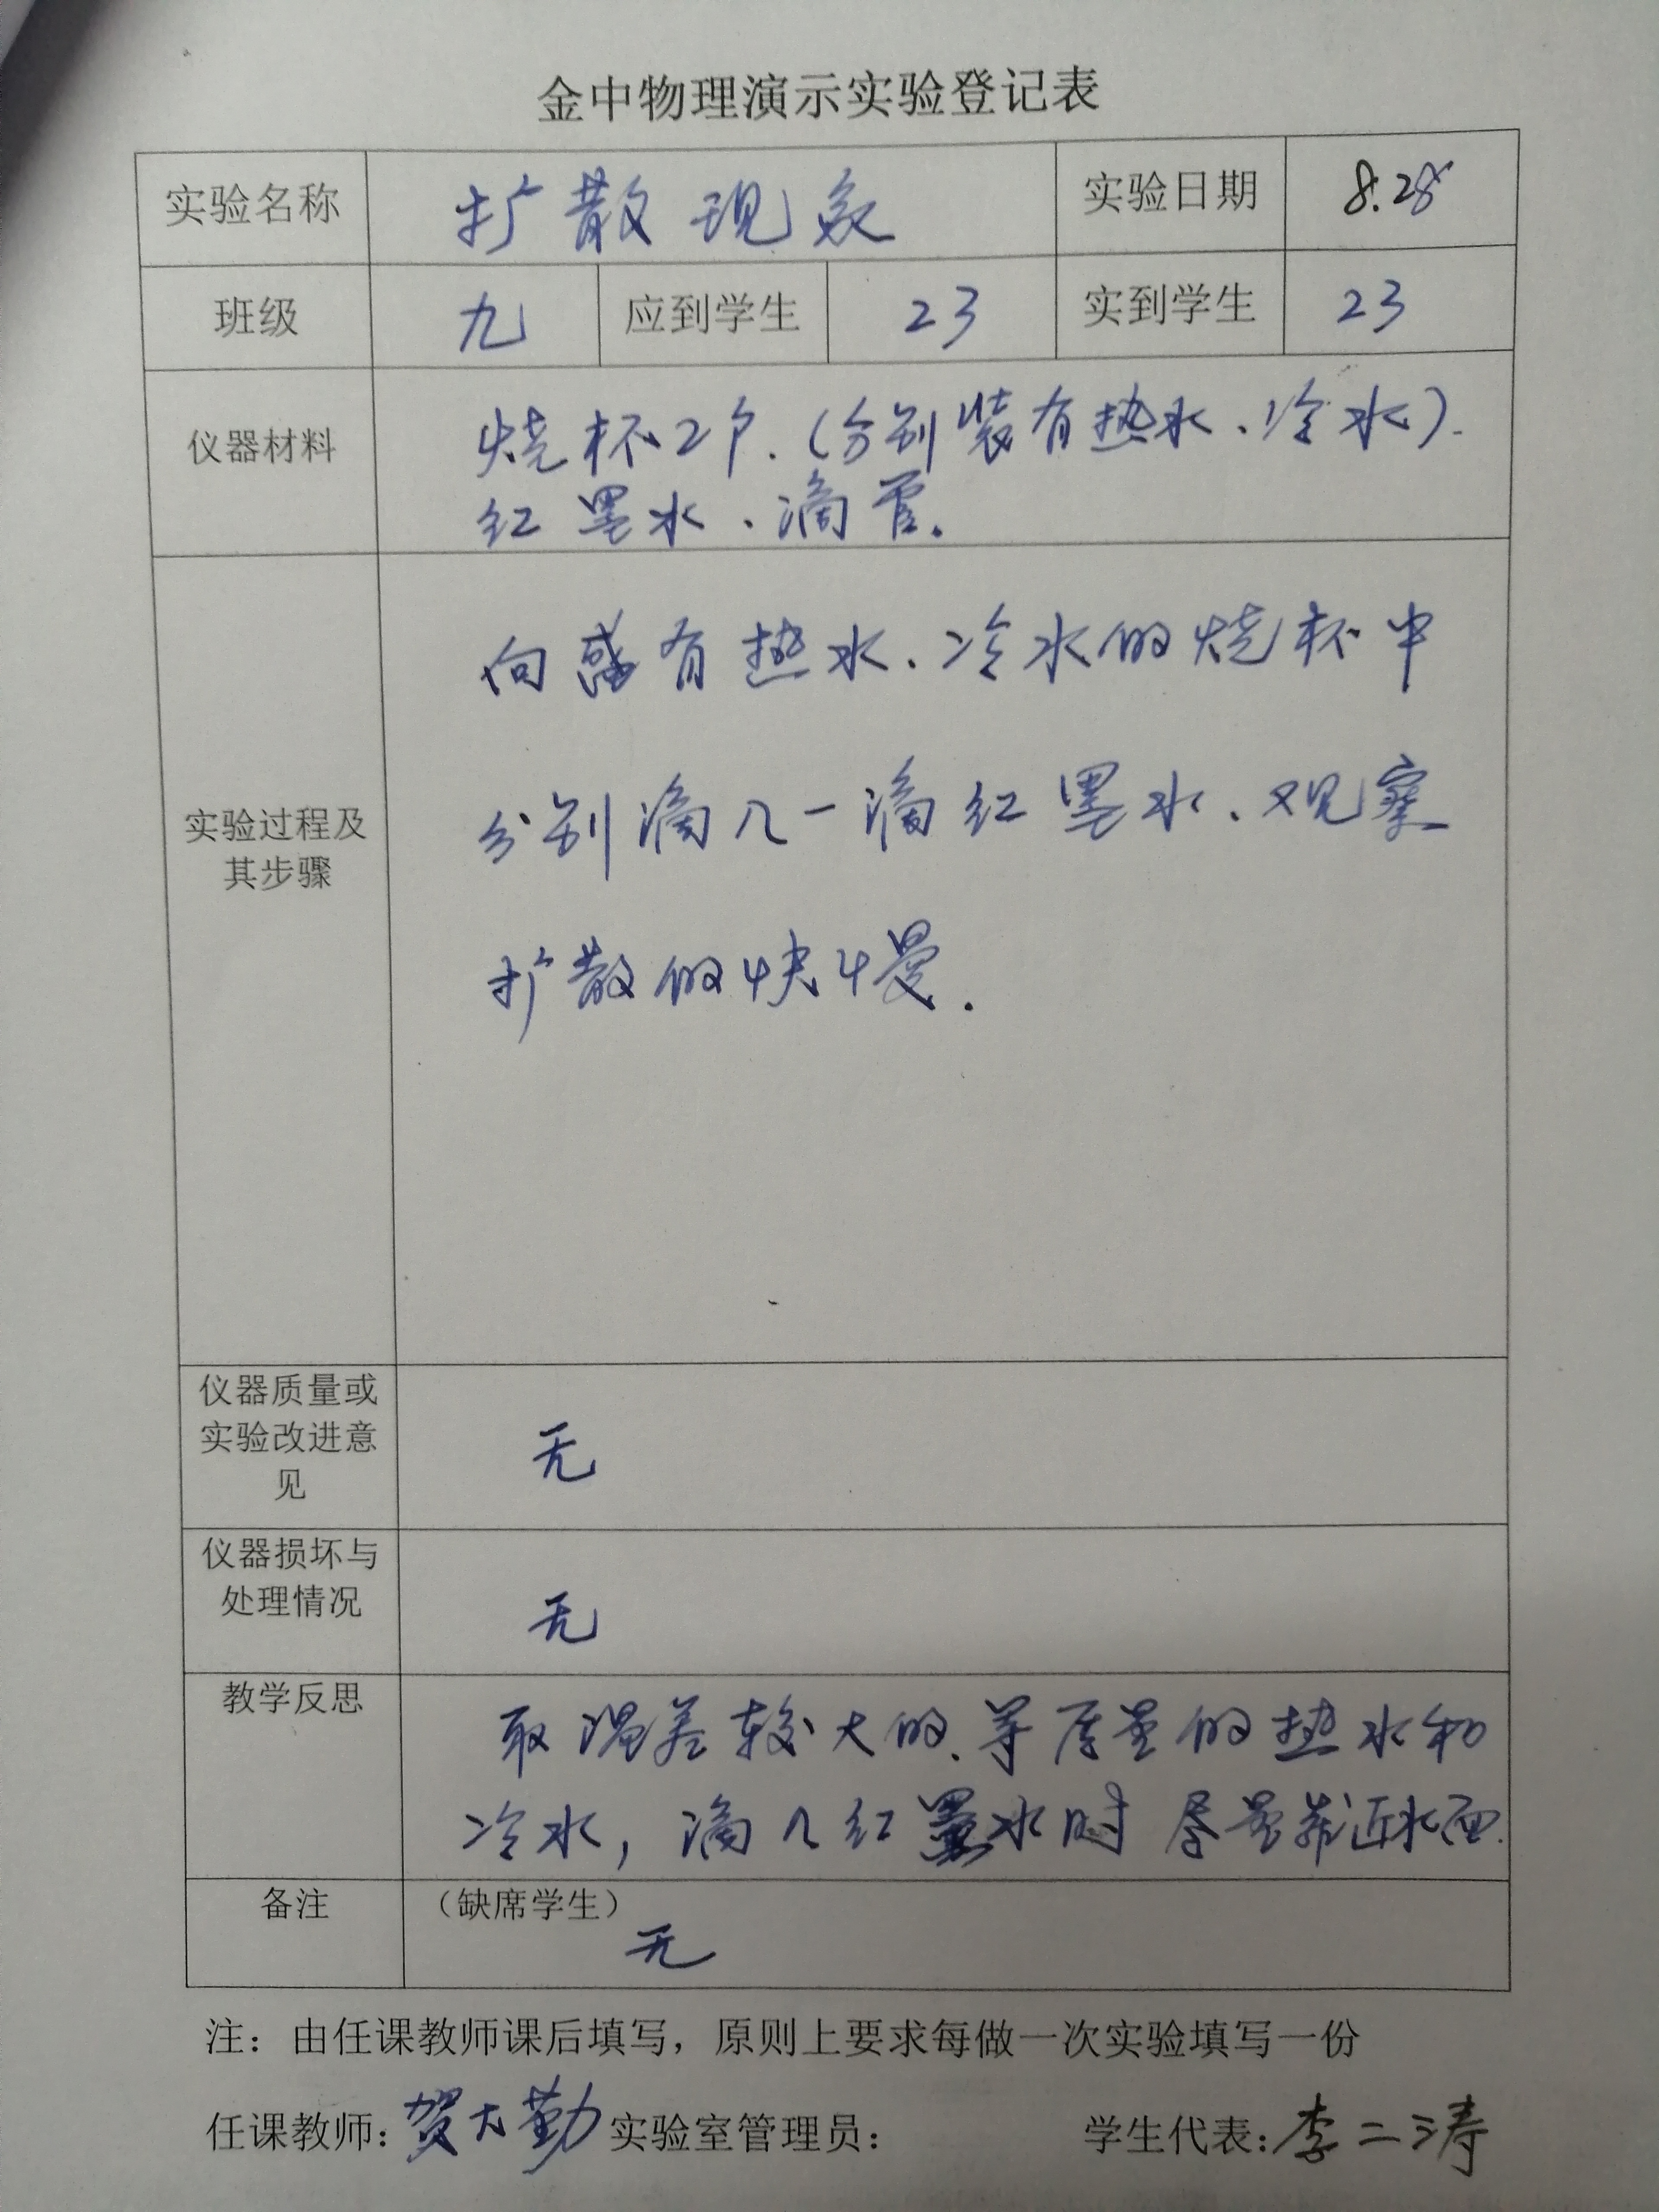 金中物理演示实验登记表
实验名称 扩散现象 实验日期 8.28
班级 九 应到学生 23 实到学生 23
仪器材料
烧杯2个.(分别装有热水、冷水).
红墨水、滴管.
向盛有热水、冷水的烧杯中
分别滴入一滴红墨水、观察
扩散的快慢.
实验过程及
其步骤
仪器质量或
实验改进意
见
无
仪器损坏与
处理情况
无
教学反思
取温差较大的、等质量的热水和
冷水,滴入红墨水时尽量靠近水面.
备注 (缺席学生)
无
注：由任课教师课后填写，原则上要求每做一次实验填写一份
任课教师:贺大勤 实验室管理员： 学生代表:李二涛